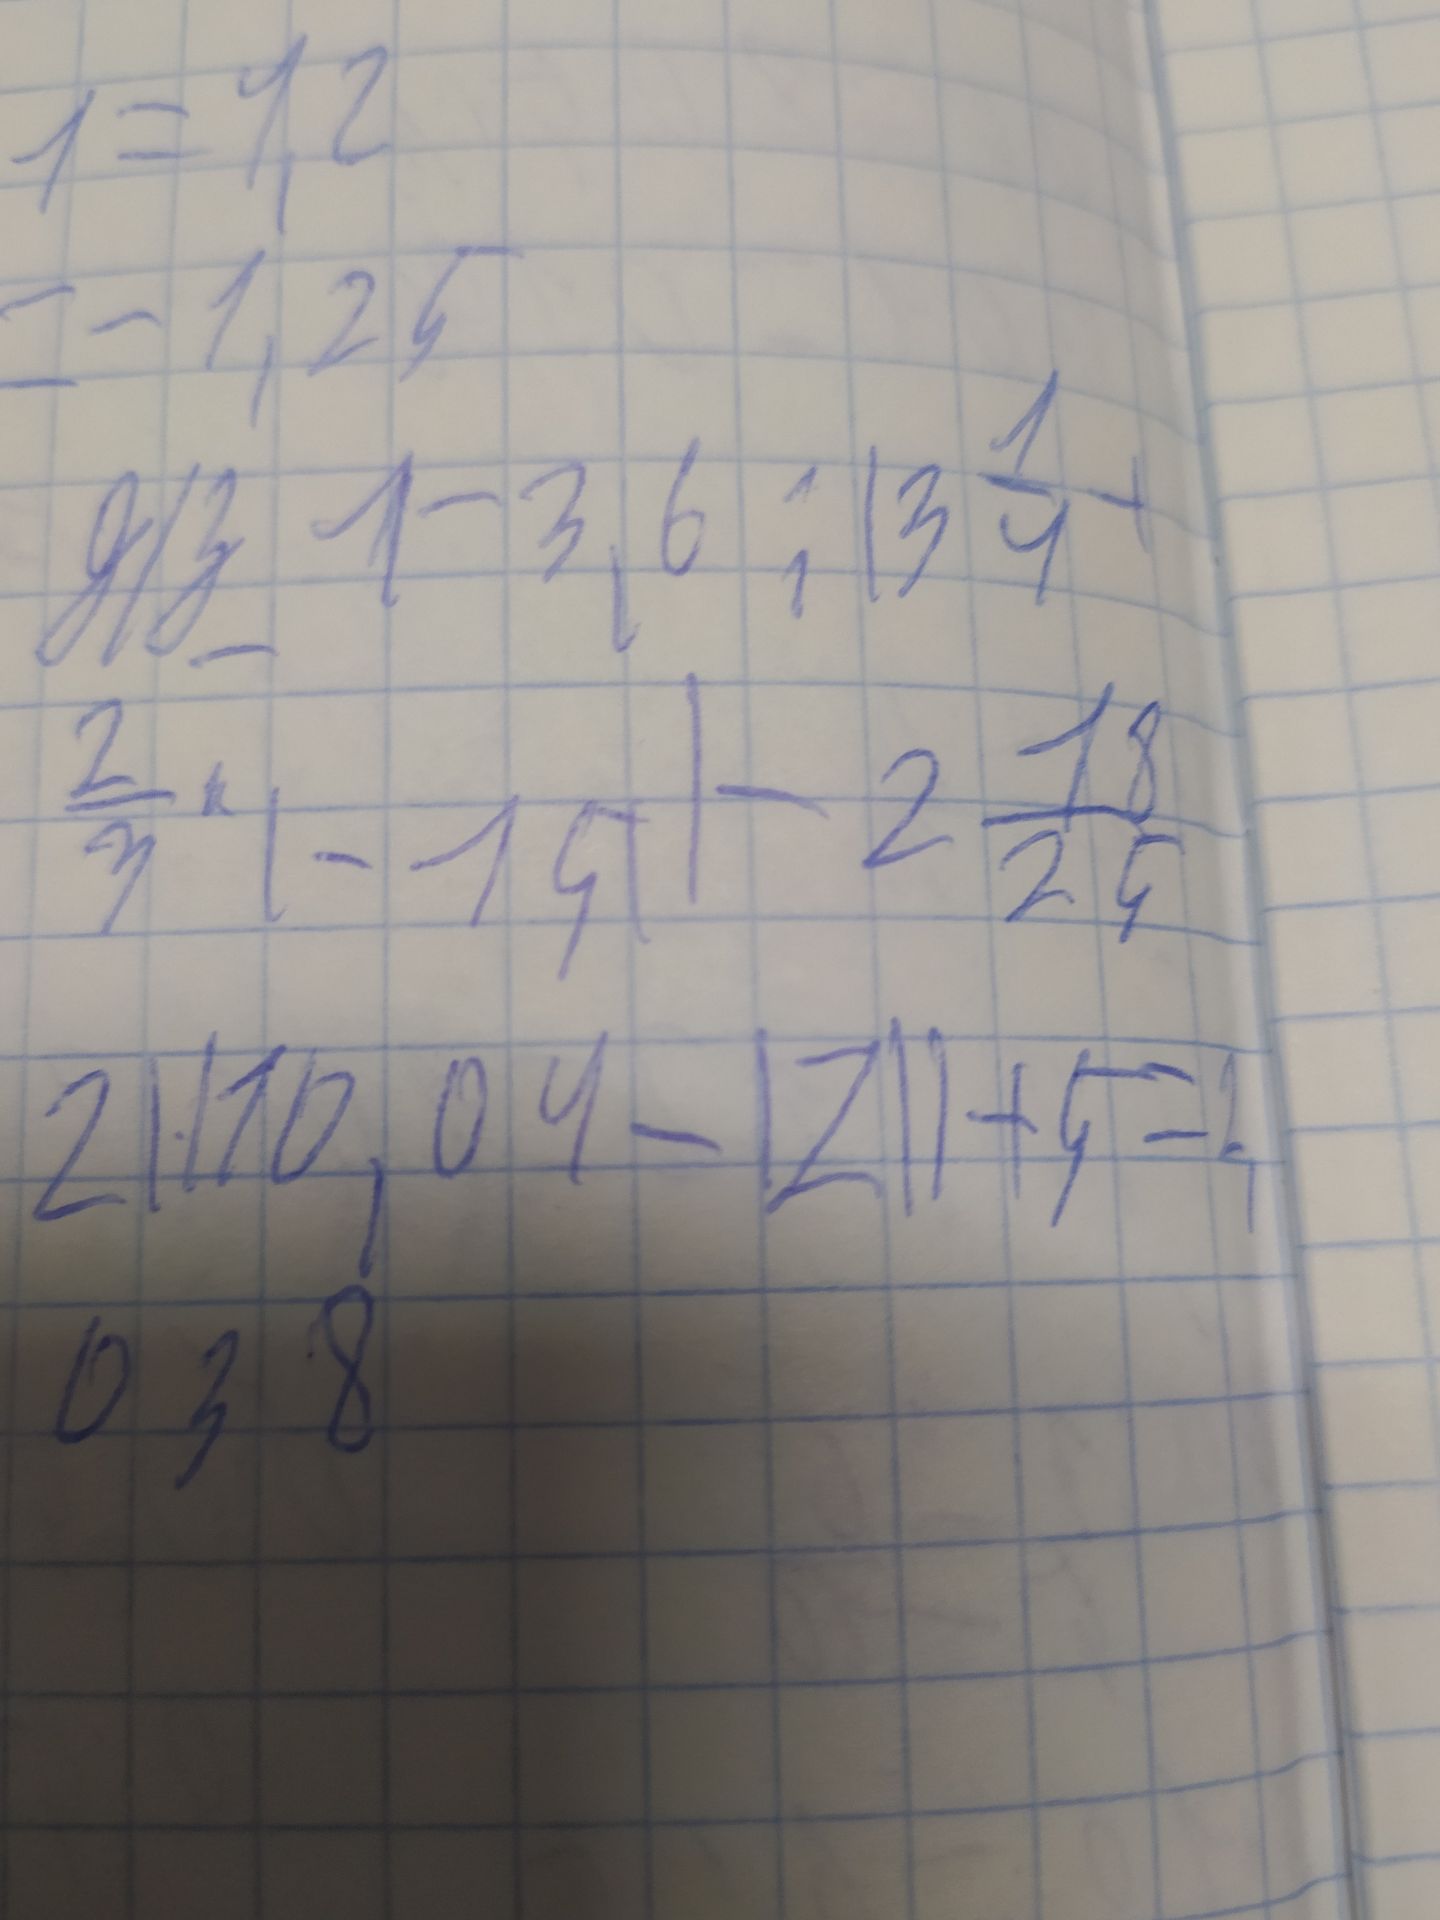 1 = 1,2
= - 1,25
д/з 1) - 3,6 : |3 1/4 +
2/3 · |- 15| - 2 18/25
2) ||10,04 - |Z|| + 5 =
0 3 8